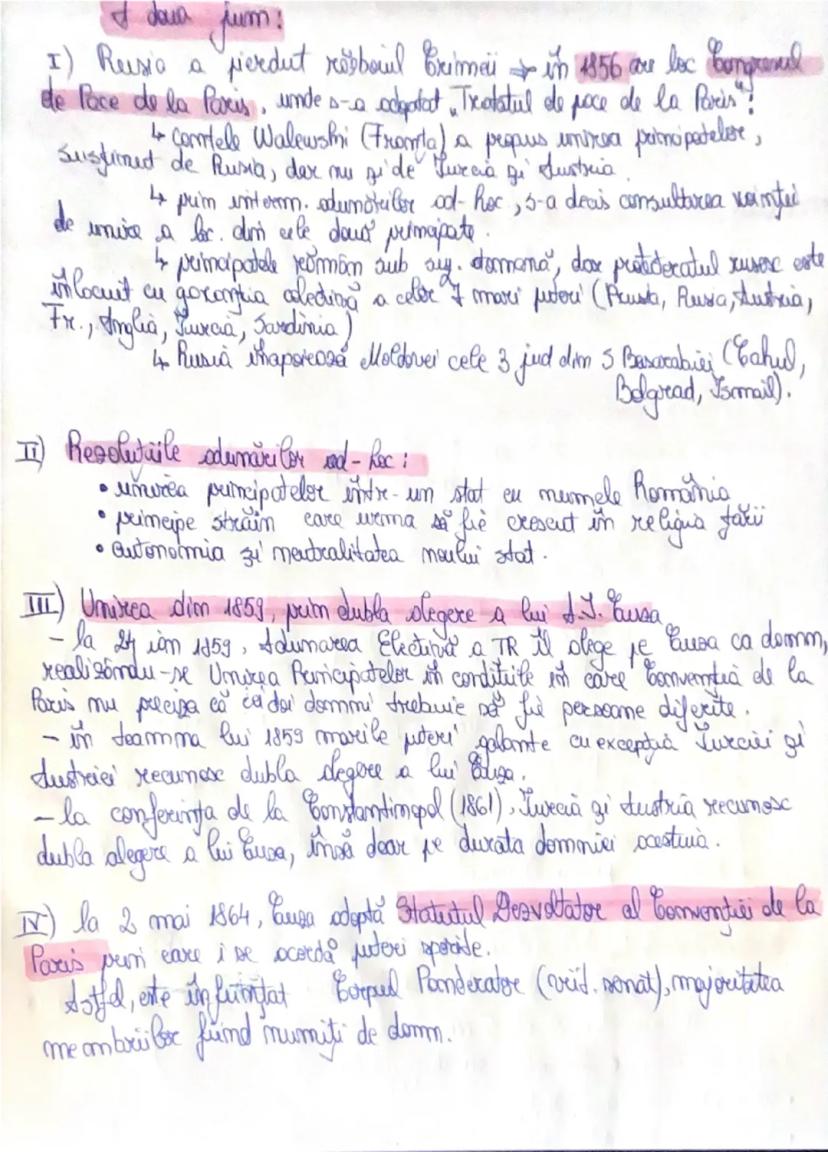 A doua jum:
I) Rusia a pierdut războiul Crimeii → în 1856 are loc Congresul
de Pace de la Paris, unde s-a adoptat „Tratatul de pace de la Paris":
↳ contele Walewski (Franța) a propus unirea principatelor,
susținut de Rusia, dar nu și de Turcia și Austria.
↳ prin interm. adunărilor ad-hoc, s-a decis consultarea voinței
de unire a loc. din cele două principate.
↳ principatele român sub suz. otomană, dar protectoratul rusesc este
înlocuit cu garanția colectivă a celor 7 mari puteri (Prusia, Rusia, Austria,
Fr., Anglia, Turcia, Sardinia)
↳ Rusia înapoiează Moldovei cele 3 jud din S Basarabiei (Cahul,
Bolgrad, Ismail).
II) Rezoluțiile adunărilor ad-hoc:
• unirea principatelor într-un stat cu numele România
• principe străin care urma să fie crescut în religia țării
• autonomia și neutralitatea noului stat.
III) Unirea din 1859, prin dubla alegere a lui A.I. Cuza
- la 24 ian 1859, Adunarea Electivă a TR îl alege pe Cuza ca domn,
realizându-se Unirea Principatelor în condițiile în care Convenția de la
Paris nu preciza că cei doi domni trebuie să fie persoane diferite.
- în toamna lui 1859 marile puteri galante cu excepția Turciei și
Austriei recunosc dubla alegere a lui Cuza.
- la conferința de la Constantinopol (1861), Turcia și Austria recunosc
dubla alegere a lui Cuza, însă doar pe durata domniei acestuia.
IV) la 2 mai 1864, Cuza adoptă Statutul Dezvoltător al Convenției de la
Paris prin care i se acordă puteri sporite.
Astfel, este înființat Corpul Ponderator (viit. senat), majoritatea
meambriilor fiind numiți de domn.